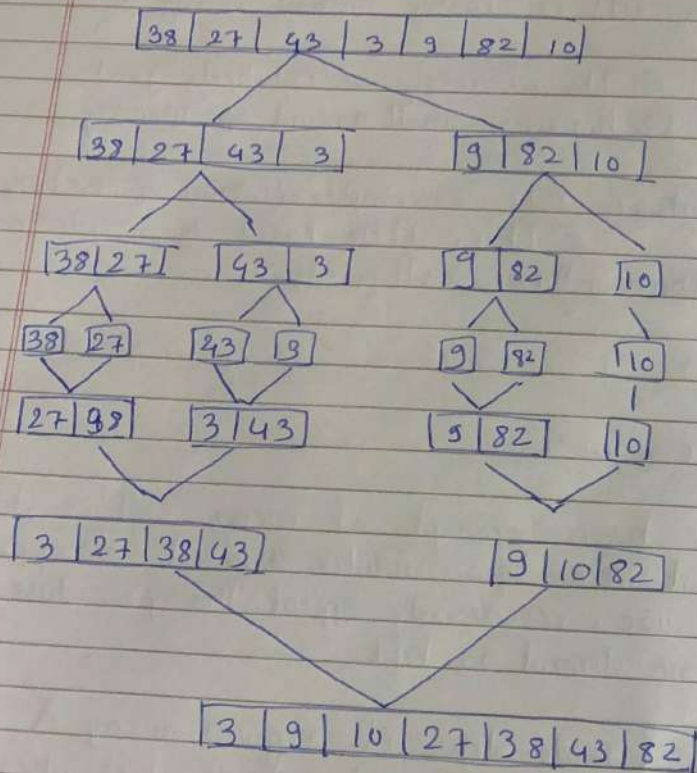 38 27 43 3 9 82 10
38 27 43 3 9 82 10
38 27 43 3 9 82 10
38 27 43 3 9 82 10
27 98 3 43 9 82 10
3 27 38 43 9 10 82
3 9 10 27 38 43 82